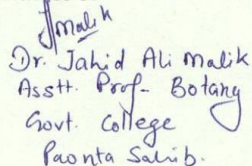 JMalik
Dr. Jahid Ali Malik
Asstt. Prof- Botany
Govt. College
Paonta Sahib.